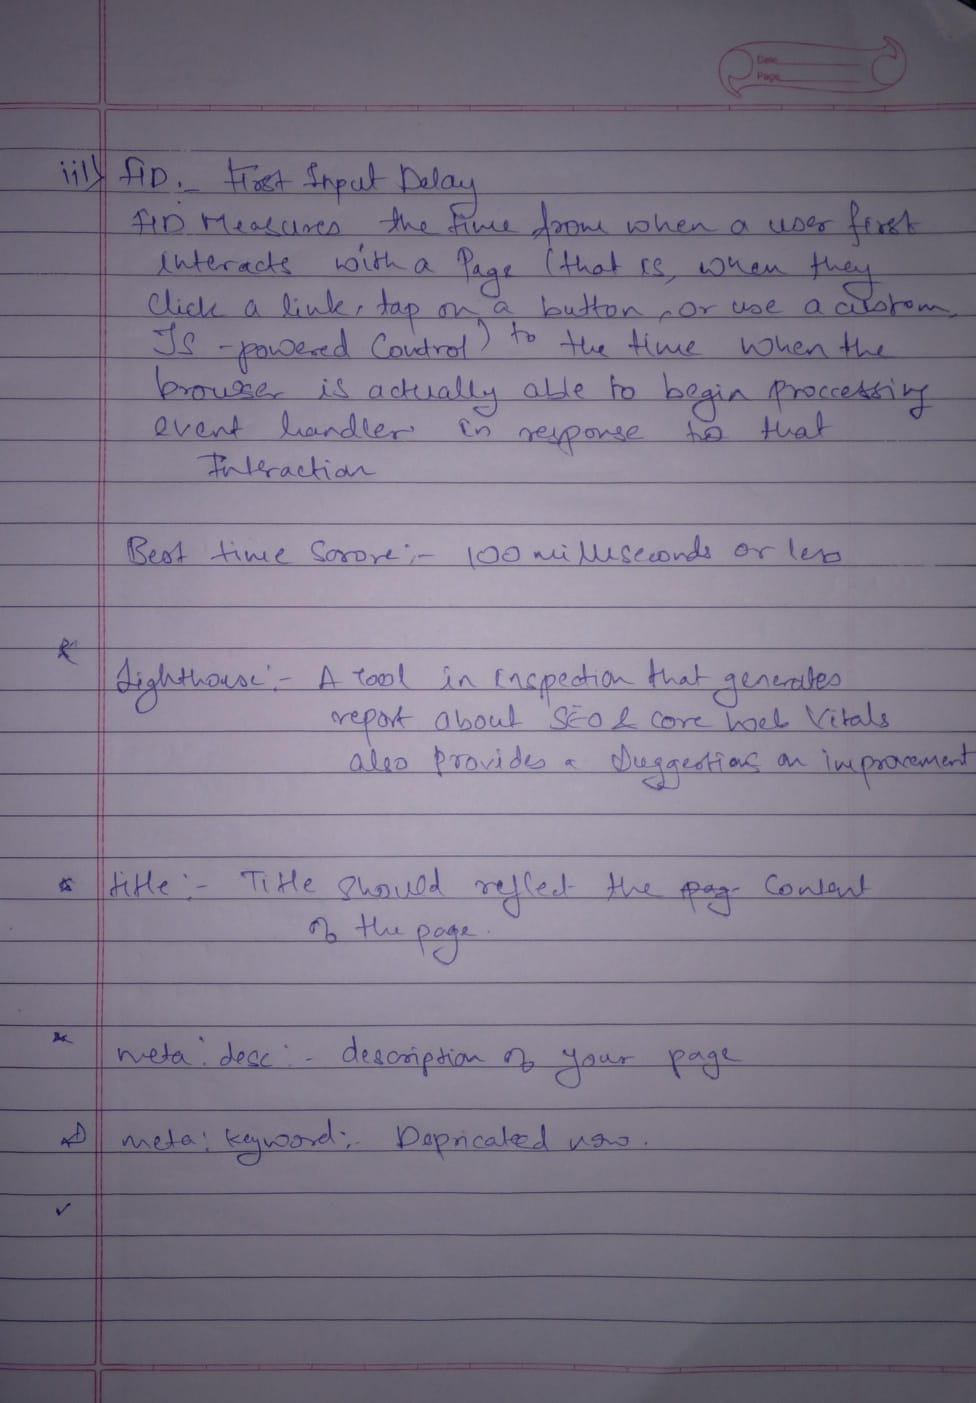 Date
Page
iii) FID :- First Input Delay
FID Measures the time from when a user first
interacts with a Page (that is, when they
click a link, tap on a button, or use a custom,
JS -powered Control) to the time when the
browser is actually able to begin proccessing
event handler in response to that
Interaction
Best time Sorore :- 100 milliseconds or less
* Lighthouse :- A tool in inspection that generates
report about SEO & core web Vitals
also Provides a Suggestions on improvement
* title :- Title should reflect the pag- Content
of the page.
* meta : desc :- description of your page
* meta : keyword :- Depricated now.
✓